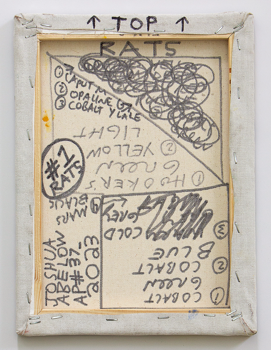 ↑ TOP ↑
RATS
② OPALINE G
③ COBALT
#1
RATS
① HOOKER'S
GREEN
② YELLOW
LIGHT
① MARS
BLACK
① COBALT
GREEN
② COBALT
BLUE
③ COLD
GREY
JOSHUA
ABELOW
AP#37-
2023